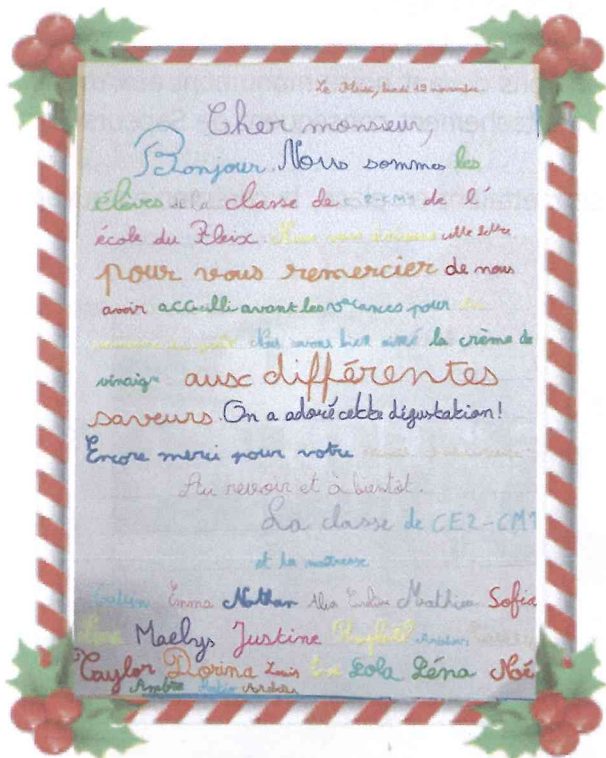 Le Fleix, lundi 19 novembre
Cher monsieur,
Bonjour. Nous sommes les
élèves de la classe de CE2-CM1 de l'
école du Fleix. Nous vous écrivons cette lettre
pour vous remercier de nous
avoir accueilli avant les vacances pour la
semaine du goût. Nous avons bien aimé la crème de
vinaigre aux différentes
saveurs. On a adoré cette dégustation!
Encore merci pour votre
Au revoir et à bientôt.
La classe de CE2-CM1
et la maîtresse
Emma Nathan Mathieu Sofia
Maelys Justine Raphaël
Taylor Dorina Louis Lola Léna Noé
Ambre